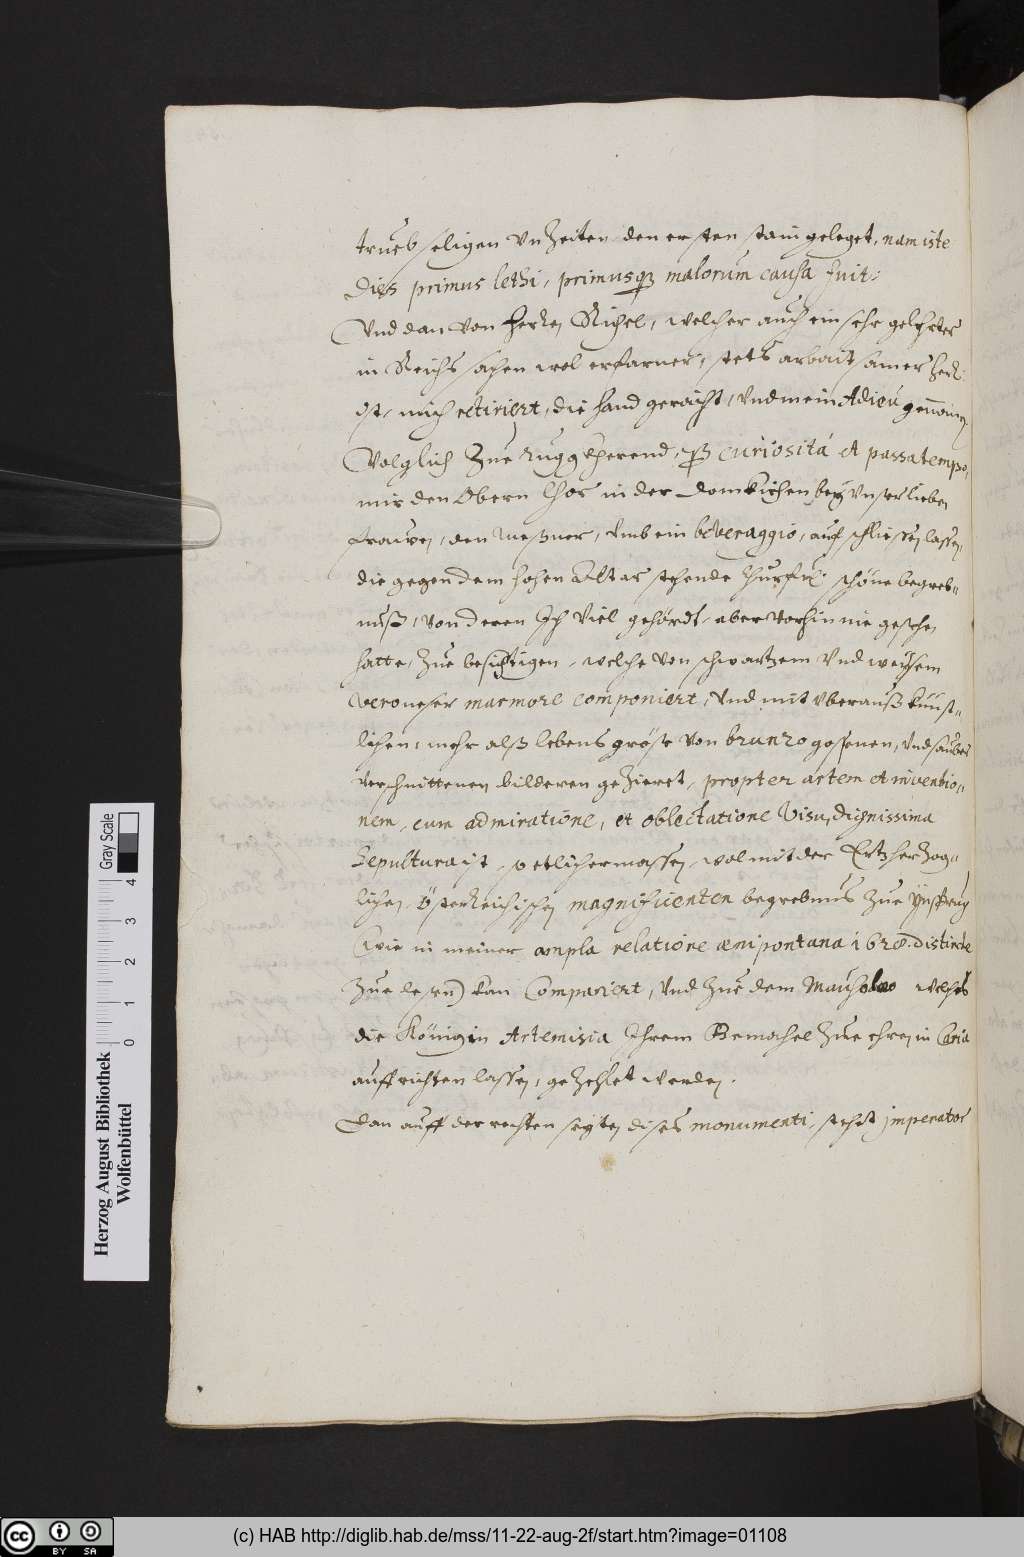 trüebseligen Vnzeiten den ersten stain geleget, nam iste
Dies primus lethi, primusqz malorum causa fuit:
Vnd dan von herren Richel, welcher auch ein sehr gelehrter
in Reichs sachen wol erfarner, stets arbaitsamer herr
ist, mich retiriert, die hand geraicht, Vnd mein Adieu genomen
Volglich Zue rugg kherend, per curiositá et passatempo,
mir den Obern Chor in der Domkirchen bey Vnser lieben
frawen, den Meßner, vmb ein beveraggio, auf schliessen lassen,
die gegen dem hohen Altar stehende Churfrl: schöne begreb-
nuß, Von deren Ich Viel gehördt, aber vorhin nie gesehen
hatte, Zue besichtigen, welche von schwartzem Vnd weysem
Veroneser marmore componiert, Vnd mit Vberauß kunst-
lichen, mehr alß lebens größe von brunzo gossenen, Vnd sauber
verschnittenen bilderen geZieret, propter artem et inventio-
nem, cum admiratione, et oblectatione Visu, dignissima
Sepultura ist, so etlichermassen, wol mit der ErtzherZog-
lichen Österreichischen magnificenten begrebnus Zue Ynsprug
(wie in meiner ampla relatione ænipontana 1628. distincte
Zue lesen) kan Compariert, Vnd Zue dem Mausolæo welches
die Königin Artemisia Ihrem Gemahel Zue ehren in Caria
auffrichten lassen, geZehlet werden.
Dan auff der rechten seyten dises monumenti, stehet jmperator
Herzog August Bibliothek
Wolfenbüttel
Gray Scale
0 1 2 3 4
cc BY SA
(c) HAB http://diglib.hab.de/mss/11-22-aug-2f/start.htm?image=01108